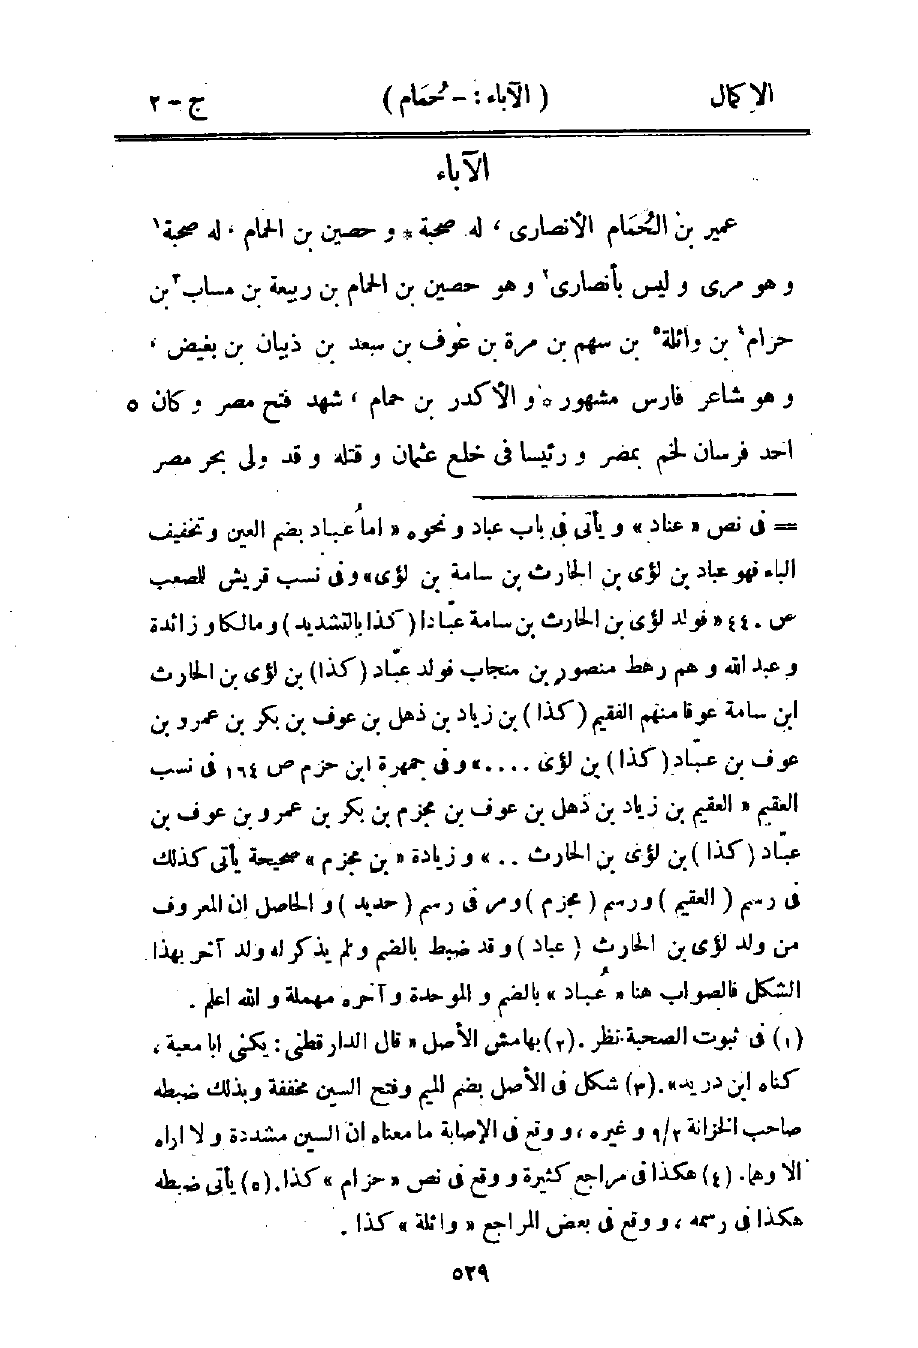 الإكمال ( الآباء : – حُمَام ) ج – ٢
الآباء
عمير بن الحُمَام الأنصارى ، له صحبة * و حصين بن الحمام ، له صحبة١
و هو مرى و ليس بأنصارى٢ و هو حصين بن الحمام بن ربيعة بن مساب٣ بن
حزام٤ بن وائلة٥ بن سهم بن مرة بن عوف بن سعد بن ذبيان بن بغيض ،
و هو شاعر فارس مشهور * و الأكدر بن حمام ، شهد فتح مصر و كان ٥
احد فرسان لخم بمصر و رئيسا فى خلع عثمان و قتله و قد ولى بحر مصر
= فى نص « عناد » و يأتى فى باب عباد و نحوه « اما عُباد بضم العين و تخفيف
الباء فهو عباد بن لؤى بن الحارث بن سامة بن لؤى» و فى نسب قريش للصعب
ص ٤٤٠ « فولد لؤى بن الحارث بن سامة عبّادا (كذا بالتشديد) و مالكا و زائدة
و عبد الله و هم رهط منصور بن منجاب فولد عبّاد (كذا) بن لؤى بن الحارث
ابن سامة عوفا منهم الفقيم (كذا) بن زياد بن ذهل بن عوف بن بكر بن عمرو بن
عوف بن عبّاد (كذا) بن لؤى ....» و فى جمهرة ابن حزم ص ١٦٤ فى نسب
العقيم « العقيم بن زياد بن ذهل بن عوف بن مجزم بن بكر بن عمرو بن عوف بن
عبّاد (كذا) بن لؤى بن الحارث .. » و زيادة « بن مجزم » صحيحة يأتى كذلك
فى رسم ( العقيم ) ورسم ( مجزم ) ومر فى رسم ( حديد ) و الحاصل ان المعروف
من ولد لؤى بن الحارث ( عباد ) و قد ضبط بالضم و لم يذكر له ولد آخر بهذا
الشكل فالصواب هنا « عُباد » بالضم و الموحدة و آخره مهملة و الله اعلم .
(١) فى ثبوت الصحبة نظر . (٢) بهامش الأصل « قال الدارقطنى : يكنى ابا معية ،
كناه ابن دريد». (٣) شكل فى الأصل بضم الميم وفتح السين مخففة وبذلك ضبطه
صاحب الخزانة ٩/٢ و غيره ، و وقع فى الإصابة ما معناه ان السين مشددة و لا اراه
الا وهما. (٤) هكذا فى مراجع كثيرة و وقع فى نص « حزام » كذا. (٥) يأتى ضبطه
هكذا فى رسمه ، و وقع فى بعض المراجع « وائلة » كذا .
٥٢٩